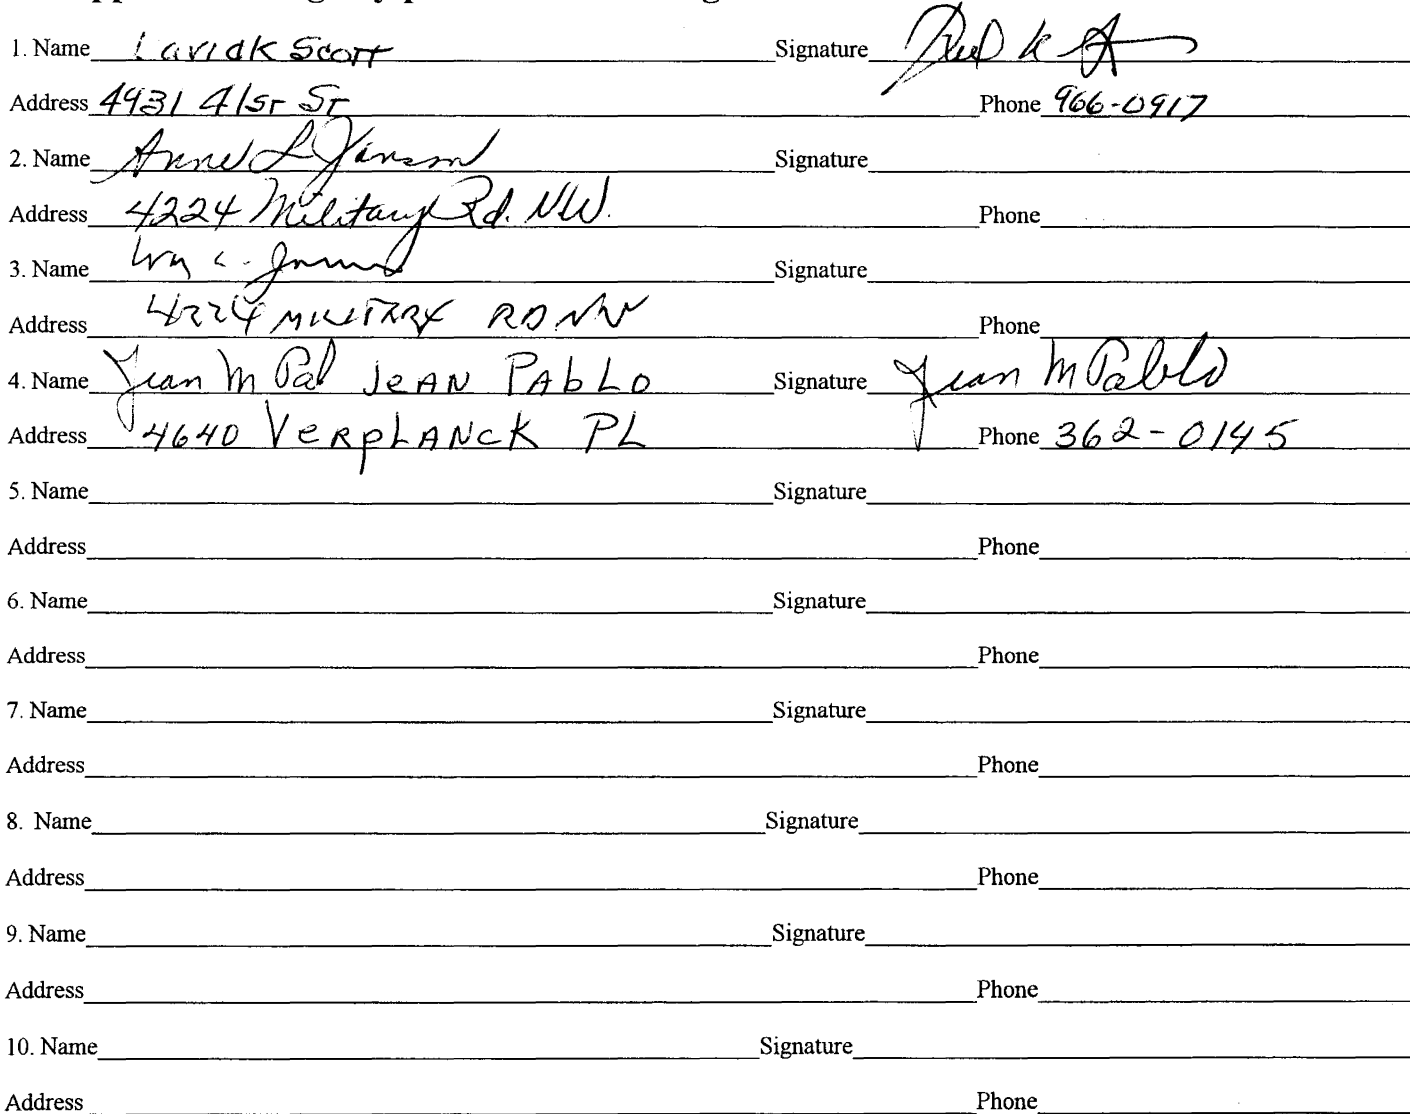 1. Name David K Scott Signature
Address 4931 41st St Phone 966-0917
2. Name Anne L Signature
Address 4224 Military Rd. NW. Phone
3. Name Wm C. Signature
Address 4224 MILITARY RD NW Phone
4. Name Jean M Pal JEAN PAbLo Signature Jean M Pablo
Address 4640 VERpLANcK PL Phone 362-0145
5. Name Signature
Address Phone
6. Name Signature
Address Phone
7. Name Signature
Address Phone
8. Name Signature
Address Phone
9. Name Signature
Address Phone
10. Name Signature
Address Phone